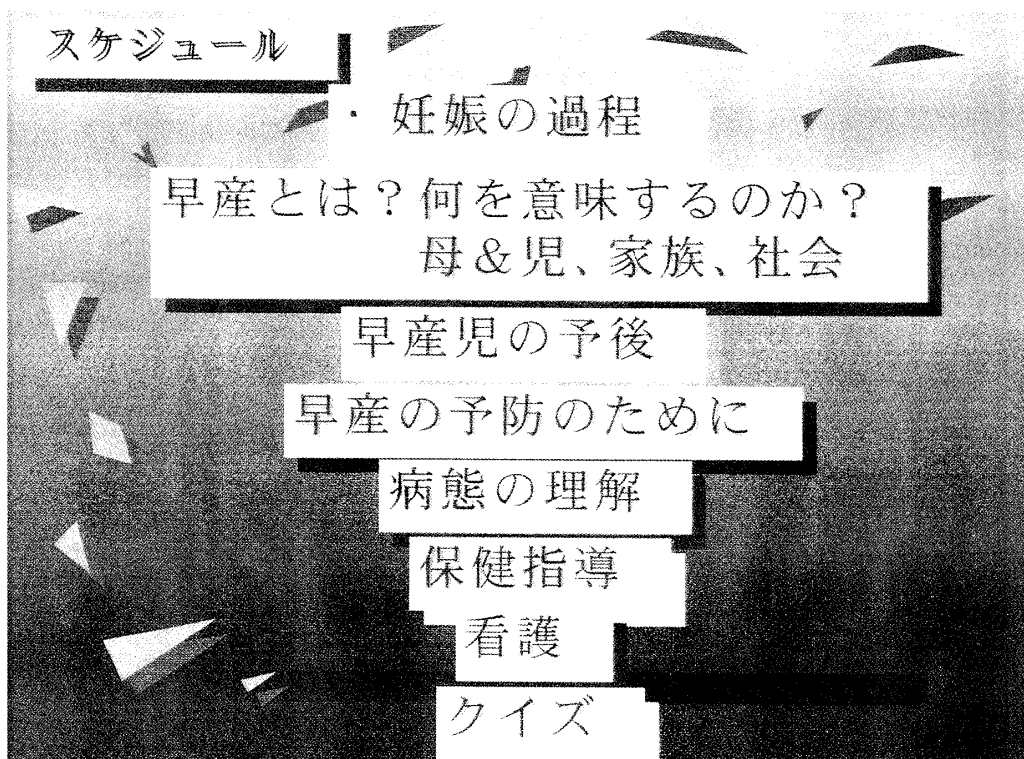 スケジュール
・妊娠の過程
早産とは？何を意味するのか？
母＆児、家族、社会
早産児の予後
早産の予防のために
病態の理解
保健指導
看護
クイズ